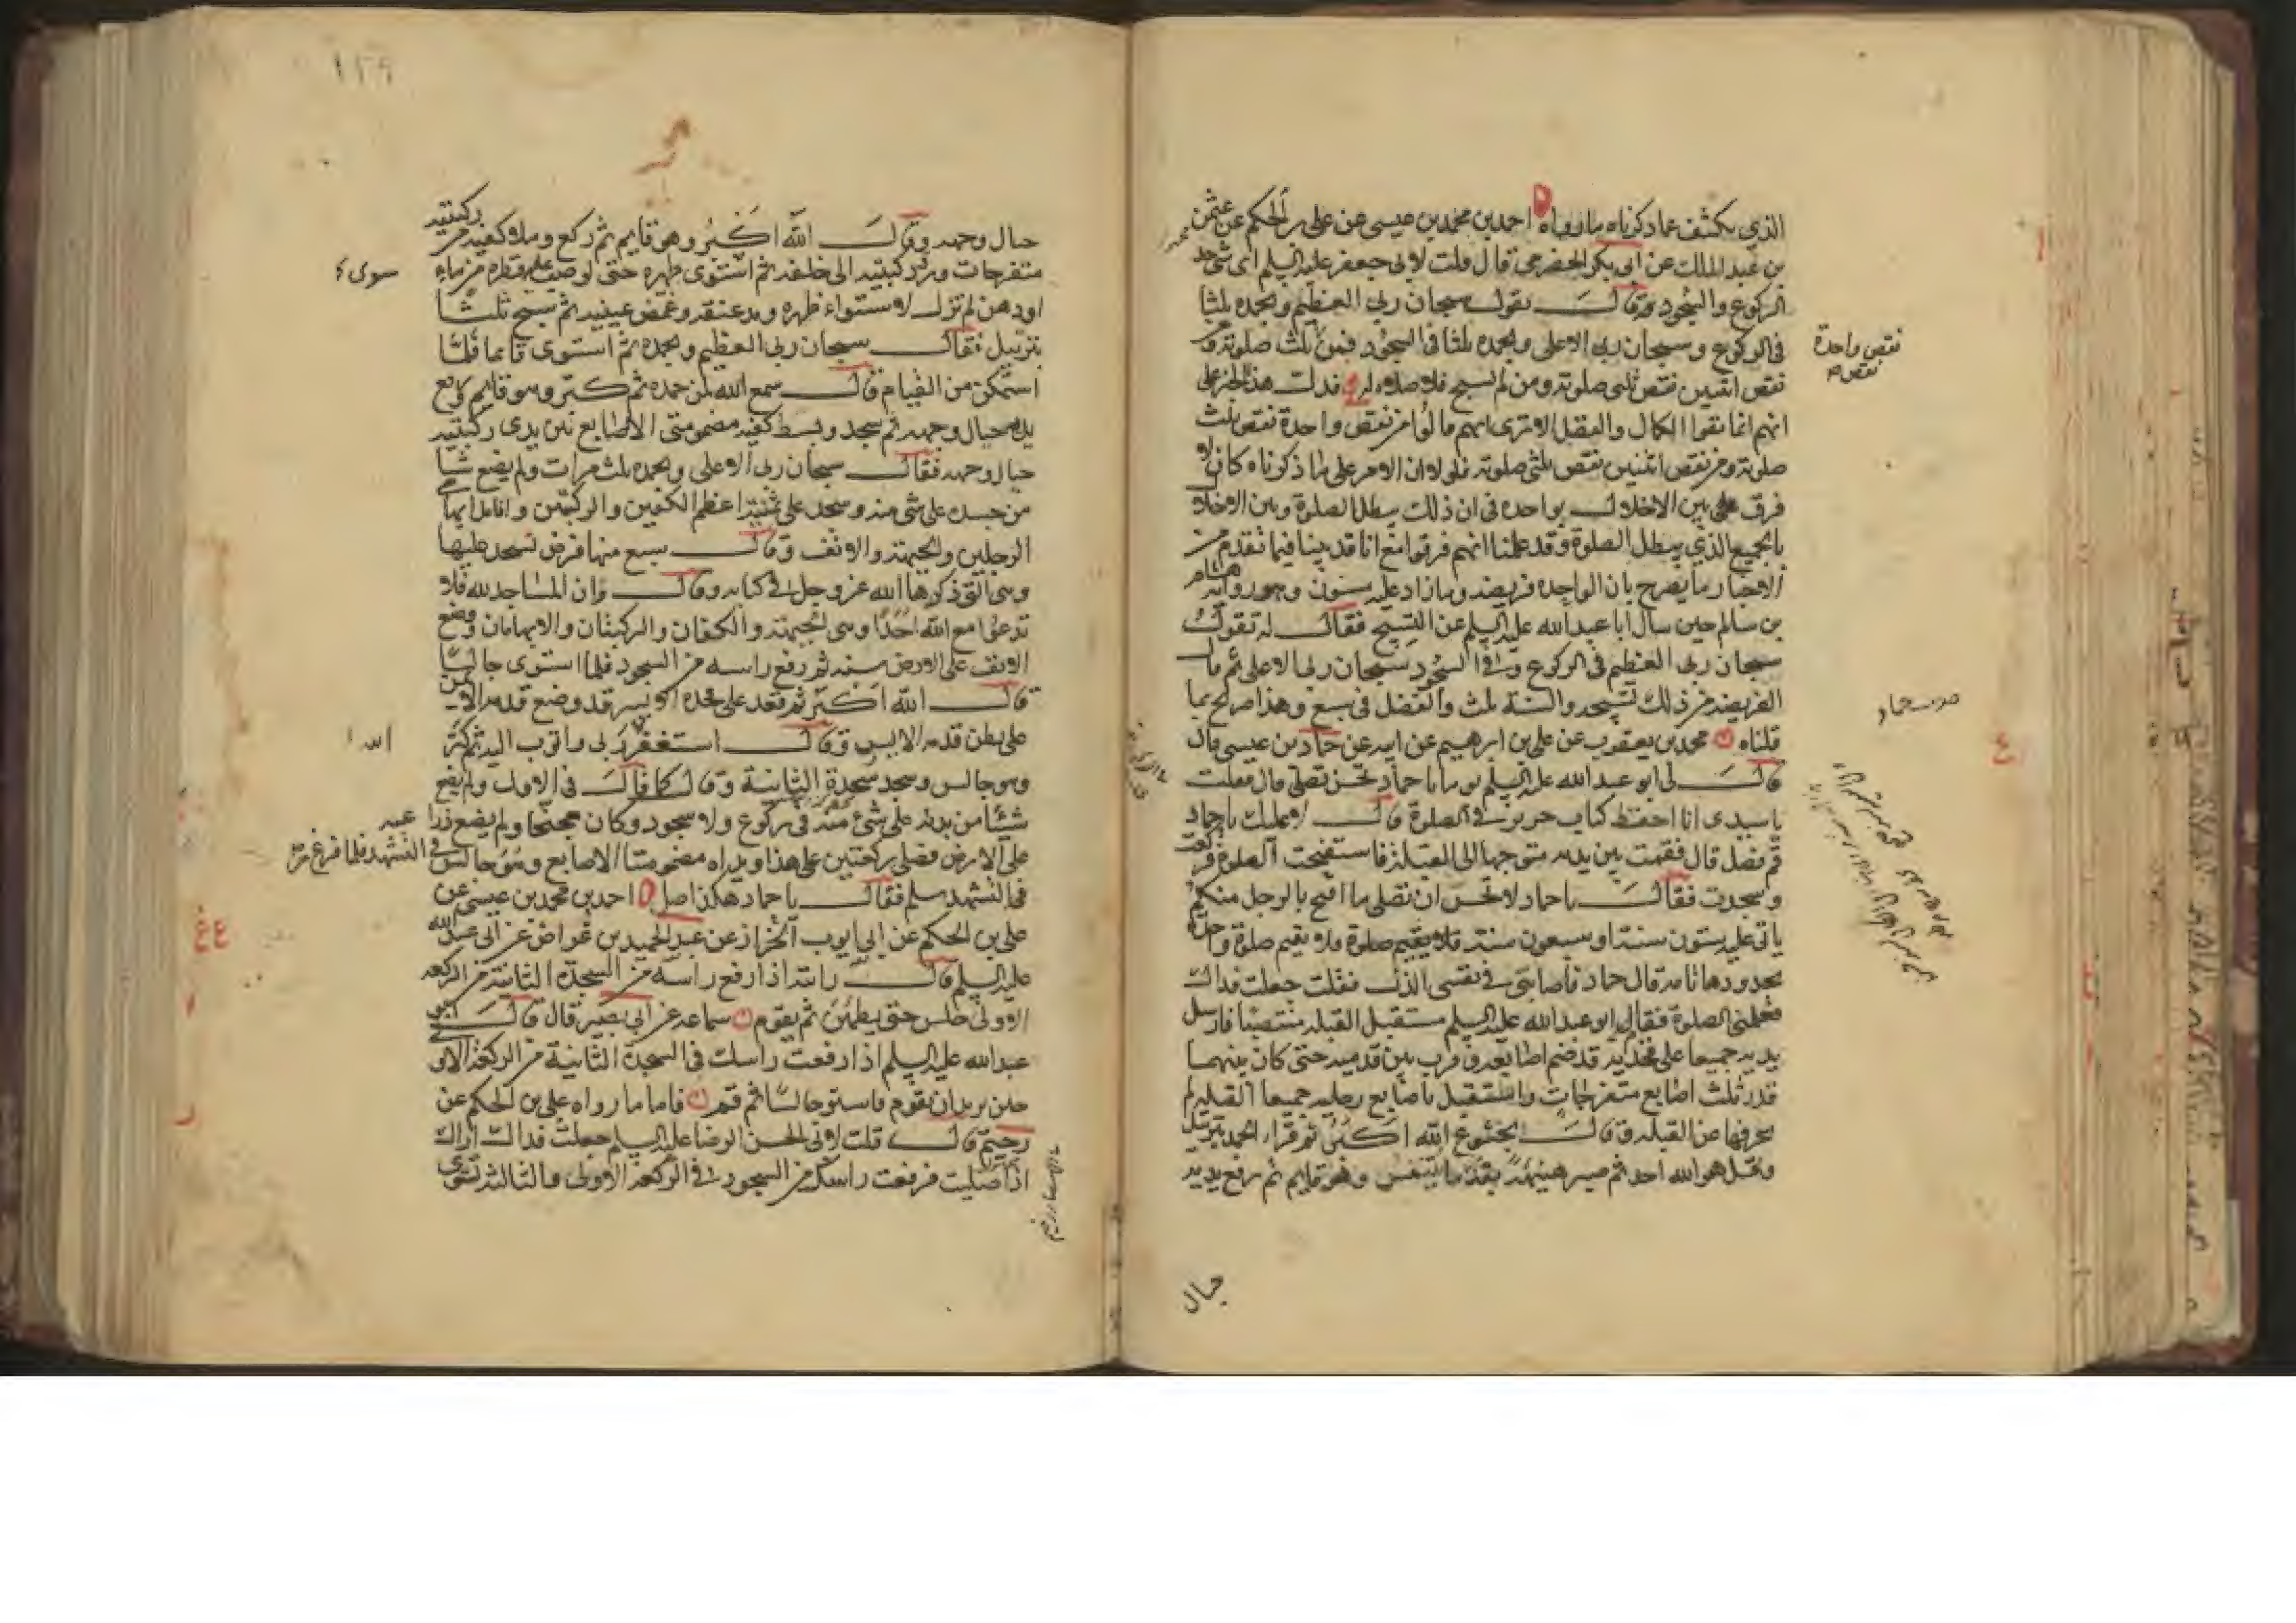 الذي يكشف عما ذكرناه ما رواه احمد بن محمد بن عيسى عن علي بن الحكم عن عثمن
بن عبد الملك عن ابي بكر الحضرمي قال قلت لابي جعفر عليه السلم اى شى حد
الركوع والسجود قال تقول سبحان ربي العظيم وبحمده ثلثا
فى الركوع وسبحان ربي الاعلى وبحمده ثلثا فى السجود فمن نقص ثلث صلوته ومن
نقص اثنين نقص ثلثى صلوته ومن لم يسبح فلا صلاه له قد دلت هذا الخبر على
انهم انما نفوا الكمال والفضل الا ترى انهم قالوا من نقص واحدة نقص ثلث
صلوته ومن نقص اثنين نقص ثلثى صلوته فلولا ان الامر على ما ذكرناه كان لا
فرق بين الاخلال بواحده فى ان ذلك يبطل الصلوة وبين الاخلال
بالجميع الذي يبطل الصلوة وقد علمنا انهم فرقوا مع انا قد بينا فيما تقدم من
الاخبار ما يصرح بان الواحده فريضه وما زاد عليه مسنون وهو رواية هشام
بن سالم حين سال ابا عبد الله عليه السلم عن التسبيح فقال له تقول
سبحان ربي العظيم فى الركوع وفى السجود سبحان ربي الاعلى ثم قال
الفريضه من ذلك تسبيحه والسنة ثلث والفضل فى سبع وهذا صريح بما
قلناه محمد بن يعقوب عن علي بن ابرهيم عن ابيه عن حماد بن عيسى قال
قال لى ابو عبد الله عليه السلم يوما يا حماد تحسن تصلى قال فقلت
يا سيدى انا احفظ كتاب حريز فى الصلوة قال لا عليك يا حماد
قم فصل قال فقمت بين يديه متوجها الى القبلة فاستفتحت الصلوة فركعت
وسجدت فقال يا حماد لا تحسن ان تصلى ما اقبح بالرجل منكم
ياتى عليه ستون سنة او سبعون سنة فلا يقيم صلوة واحدة
بحدودها تامة قال حماد فاصابنى فى نفسى الذل فقلت جعلت فداك
فعلمنى الصلوة فقام ابو عبد الله عليه السلم مستقبل القبله منتصبا فارسل
يديه جميعا على فخذيه قد ضم اصابعه وقرب بين قدميه حتى كان بينهما
قدر ثلث اصابع متفرجات واستقبل باصابع رجليه جميعا القبله لم
يحرفها عن القبله وقال بخشوع الله اكبر ثم قرا الحمد بترتيل
وقل هو الله احد ثم صبر هنيئة بقدر ما يتنفس وهو قايم ثم رفع يديه
حيال
نقص واحدة
نقص
حماد
١٢٩
حيال وجهه وقال الله اكبر وهو قايم ثم ركع وملا كفيه من ركبتيه
متفرجات ورد ركبتيه الى خلفه ثم استوى ظهره حتى لو صب عليه قطره من ماء
او دهن لم تزل لاستواء ظهره ومد عنقه وغمض عينيه ثم سبح ثلثا
بترتيل فقال سبحان ربي العظيم وبحمده ثم استوى قايما فلما
استمكن من القيام قال سمع الله لمن حمده ثم كبر وهو قايم رفع
يديه حيال وجهه ثم سجد وبسط كفيه مضمومتى الاصابع بين يدى ركبتيه
حيال وجهه فقال سبحان ربي الاعلى وبحمده ثلث مرات ولم يضع شيا
من جسده على شى منه وسجد على ثمنية اعظم الكفين والركبتين وانامل ابهامى
الرجلين والجبهة والانف وقال سبع منها فرض تسجد عليها
وهى التى ذكرها الله عز وجل فى كتابه وقال وان المساجد لله فلا
تدعوا مع الله احدا وهى الجبهة والكفان والركبتان والابهامان ووضع
الانف على الارض سنه ثم رفع راسه من السجود فلما استوى جالسا
قال الله اكبر ثم قعد على فخذه الايسر قد وضع قدمه الايمن
على بطن قدمه الايسر وقال استغفر الله ربي واتوب اليه ثم كبر
وهو جالس وسجد سجدة الثانية وقال كما قال فى الاول ولم يضع
شيئا من بدنه على شئ منه فى ركوع ولا سجود وكان مجنحا ولم يضع ذراعيه
على الارض فصلى ركعتين على هذا ويداه مضمومتا الاصابع وهو جالس فى التشهد فلما فرغ من
فى التشهد سلم فقال يا حماد هكذا صل احمد بن محمد بن عيسى عن
علي بن الحكم عن ابي ايوب الخزاز عن عبد الحميد بن غواض عن ابي عبد الله
عليه السلم قال رايته اذا رفع راسه من السجدة الثانية من الركعه
الاولى جلس حتى يطمئن ثم يقوم سماعه عن ابي بصير قال قال ابو
عبد الله عليه السلم اذا رفعت راسك فى السجدة الثانية من الركعة الاولى
حين تريد ان تقوم فاستو جالسا ثم قم فاما ما رواه علي بن الحكم عن
رحيم قال قلت لابي الحسن الرضا عليه السلم جعلت فداك اراك
اذا صليت فرفعت راسك من السجود فى الركعه الاولى والثالثة تستوى
سوى
الله